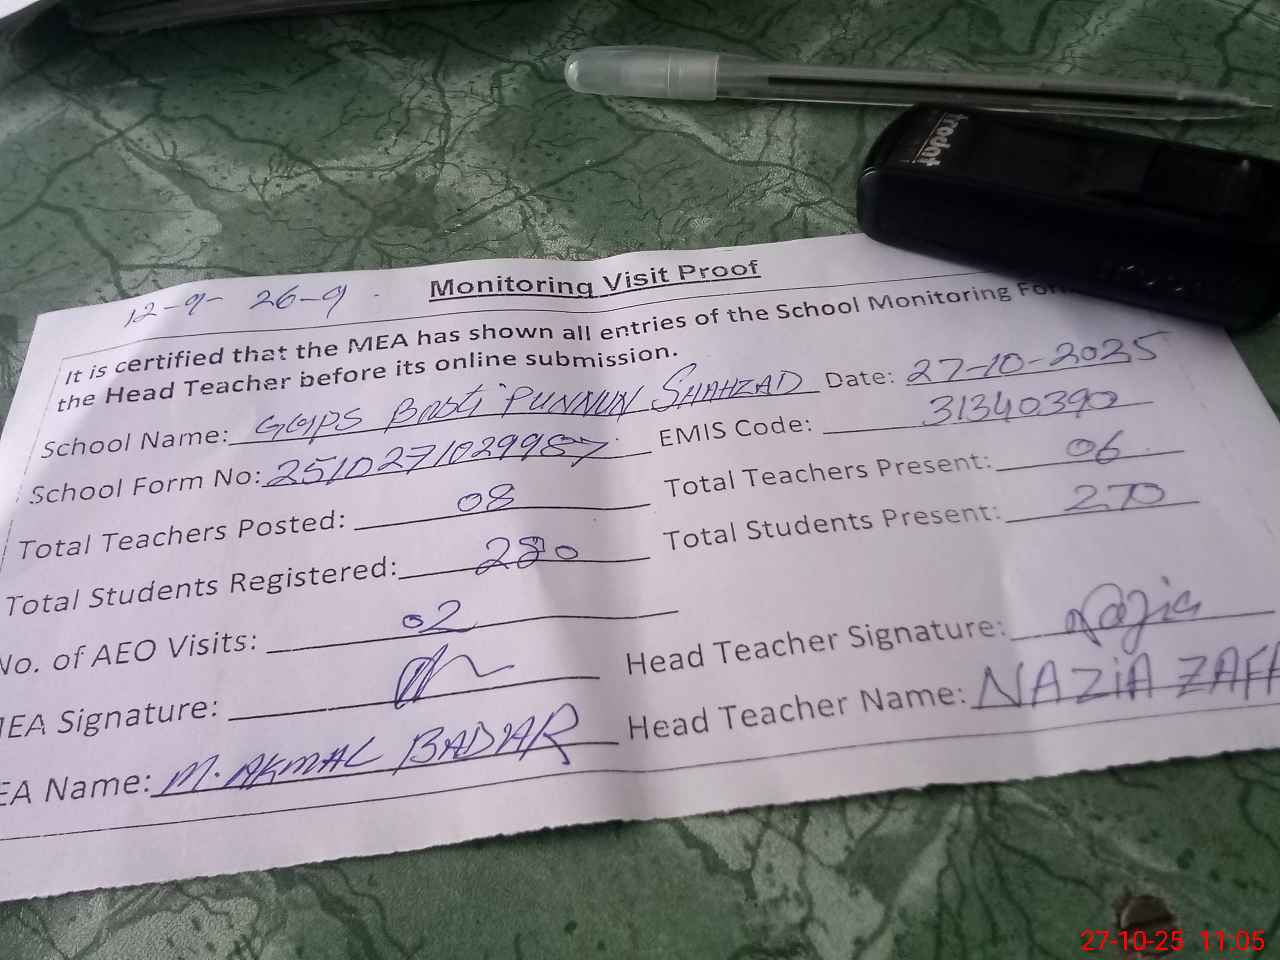 trodat
12-9- 26-9.
Monitoring Visit Proof
It is certified that the MEA has shown all entries of the School Monitoring
the Head Teacher before its online submission.
School Name: GGPS Basti PUNNUN SHAHZAD Date: 27-10-2025
School Form No: 2510271029987 EMIS Code: 31340390
Total Teachers Posted: 08 Total Teachers Present: 06
Total Students Registered: 280 Total Students Present: 270
No. of AEO Visits: 02
MEA Signature: Head Teacher Signature: Nazia
EA Name: M. AKMAL BADAR Head Teacher Name: NAZIA ZAF
27-10-25 11:05